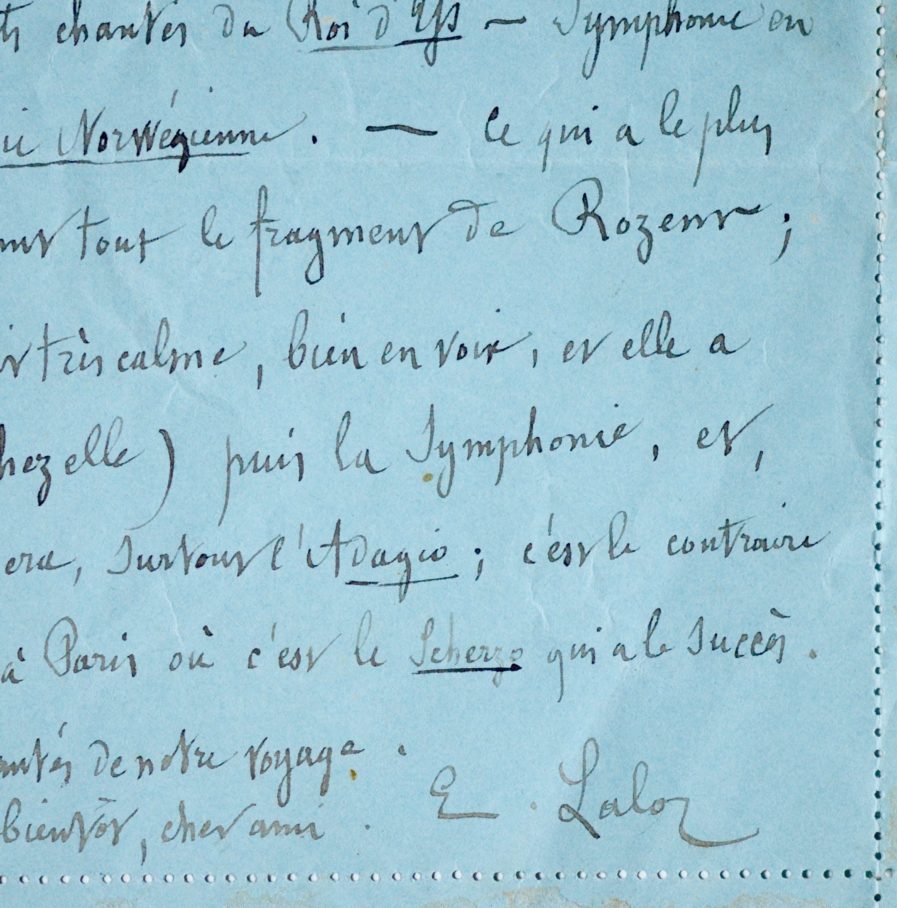 chantés du Roi d'Ys — Symphonie en
ie Norwégienne. — Ce qui a le plus
surtout le fragment de Rozenn;
très calme, bien en voix, et elle a
chez elle) puis la Symphonie, et,
era, surtout l'Adagio; c'est le contraire
à Paris où c'est le Scherzo qui a le succès.
de notre voyage.
bientôt, cher ami. E. Lalo